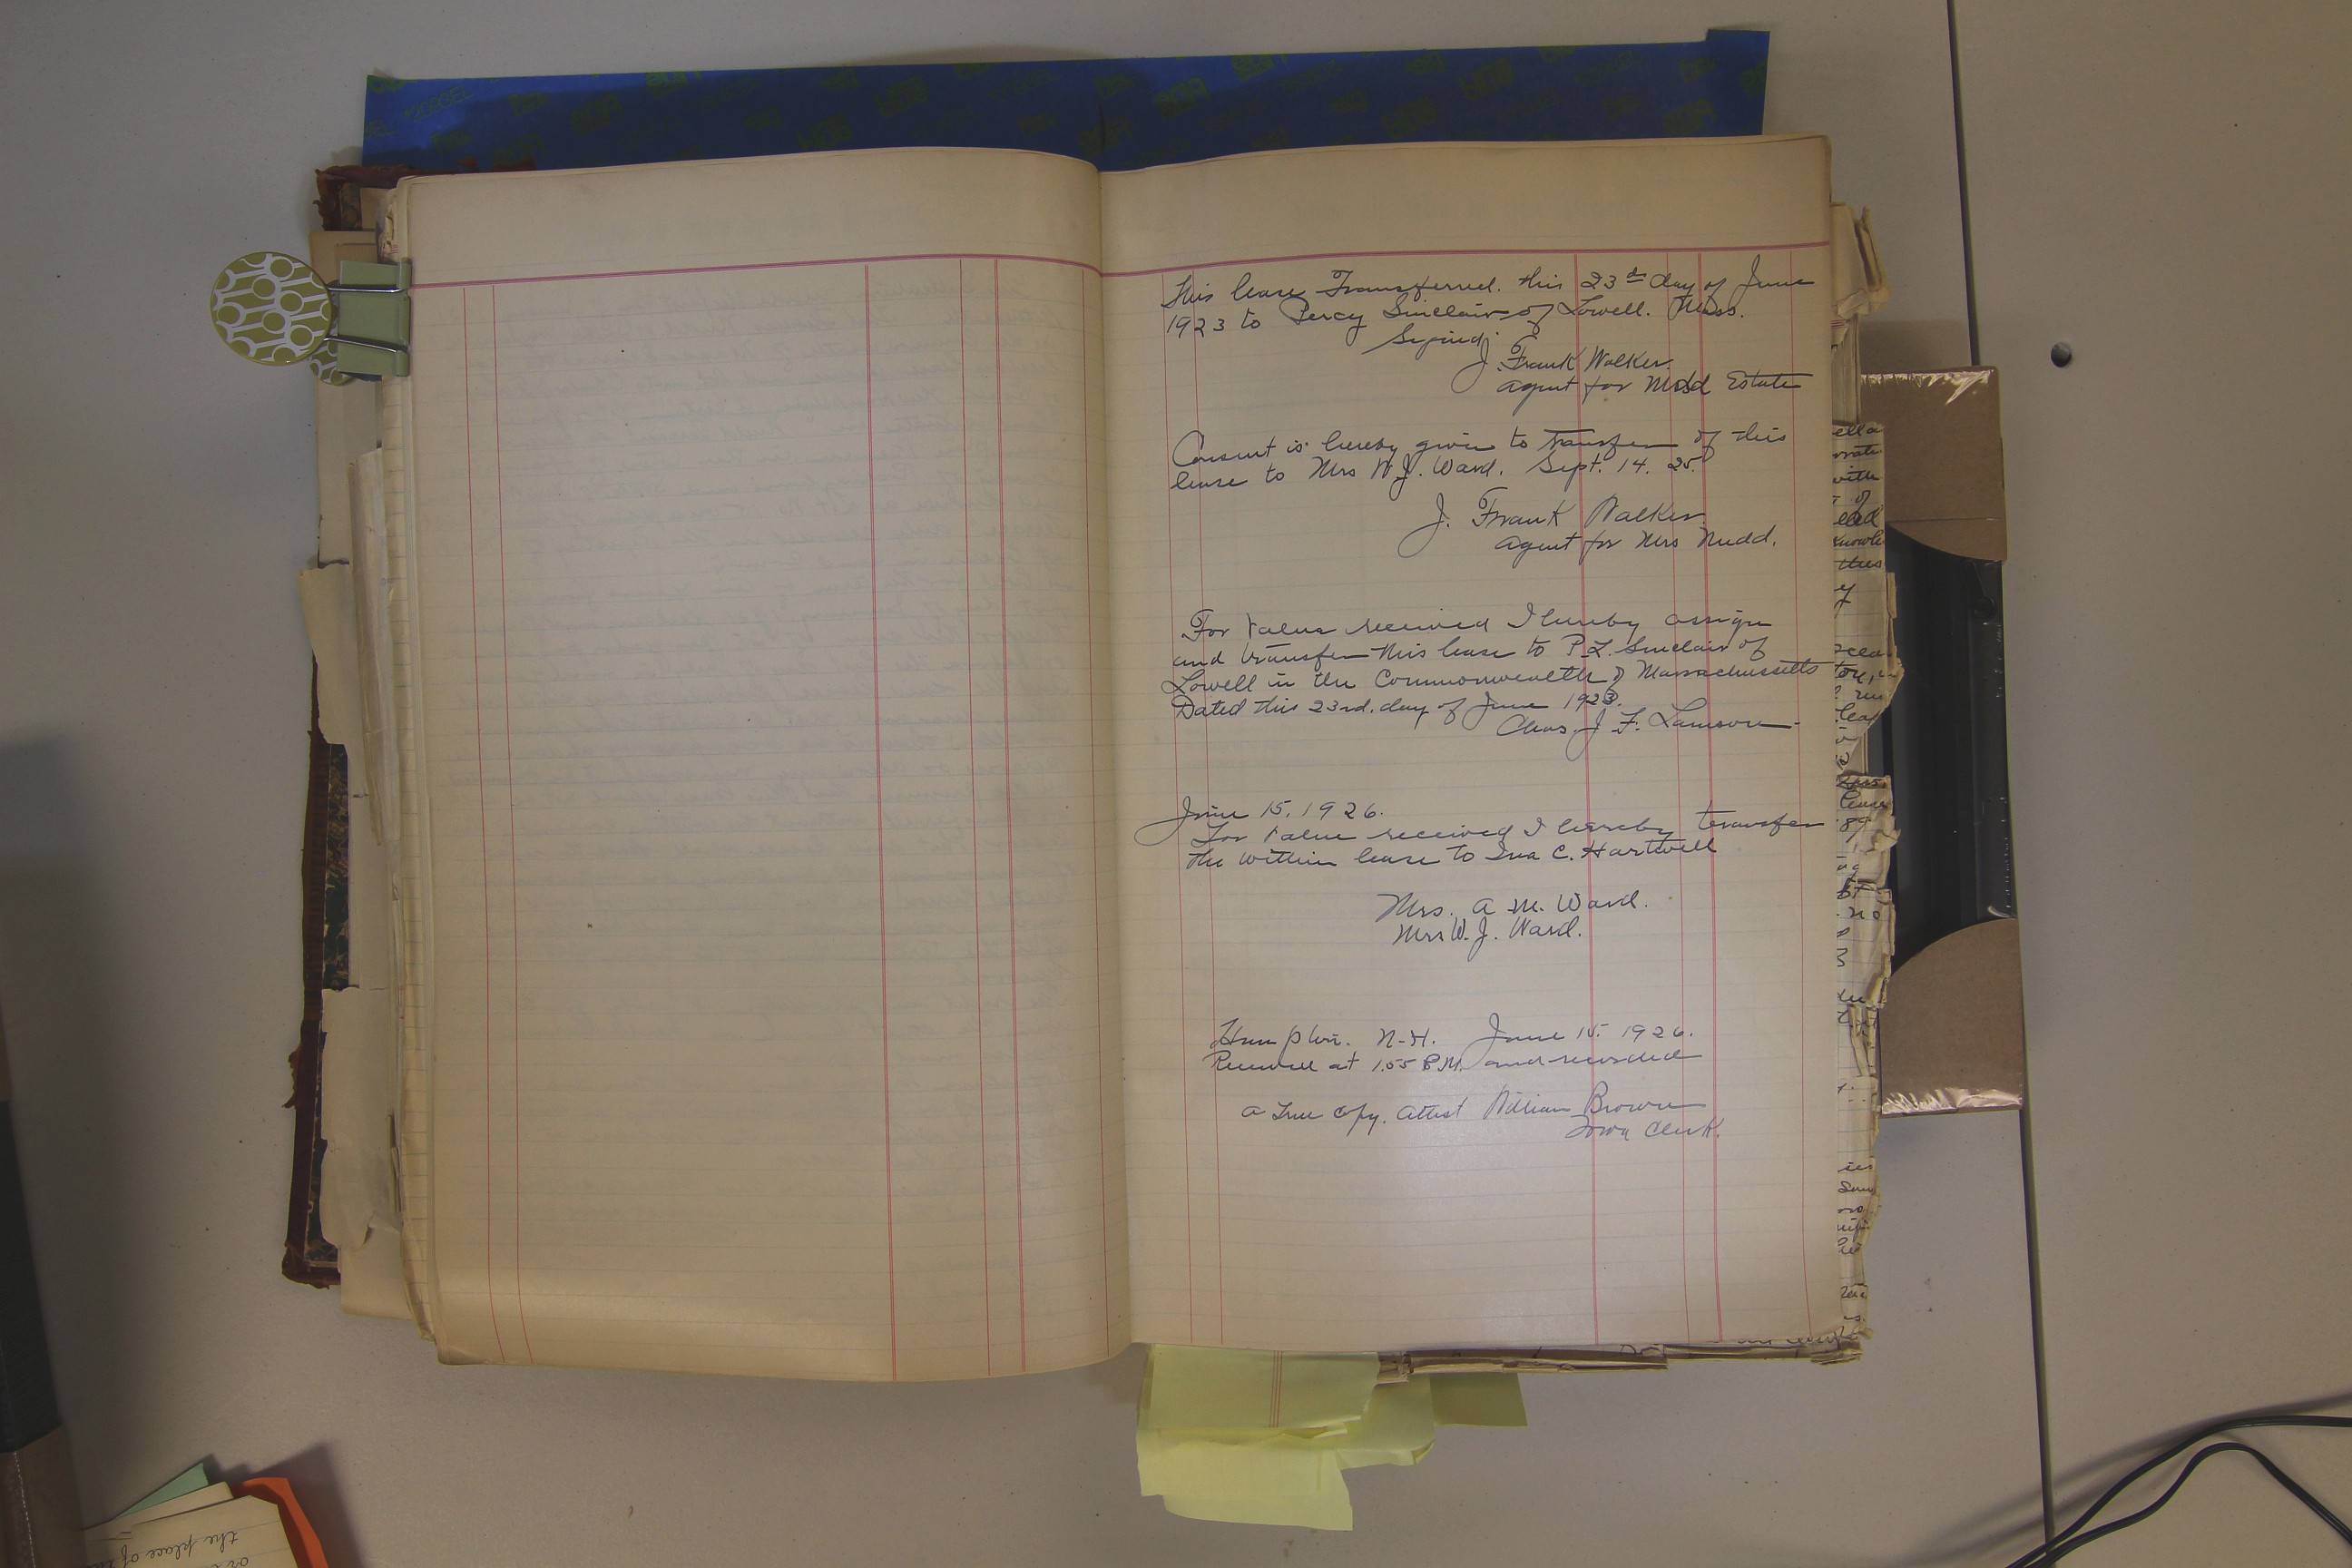 This lease Transferred. this 23rd day of June
1923 to Percy Sinclair of Lowell. Mass.
Signed
J. Frank Walker.
agent for Nudd Estate
Consent is hereby given to transfer of this
lease to Mrs W. J. Ward. Sept. 14. 25.
J. Frank Walker.
agent for Mrs Nudd.
For Value received I hereby assign
and transfer this lease to P. L. Sinclair of
Lowell in the Commonwealth of Massachusetts
Dated this 23rd. day of June 1923.
Chas. J. F. Lamson
June 15, 1926.
For Value received I hereby transfer
the within lease to Ina C. Hartwell
Mrs. A M. Ward.
Mrs W. J. Ward.
Hampton. N-H. June 15. 1926.
Received at 1.55 P.M. and recorded
A True Copy. Attest William Brown
Town Clerk.
the place of